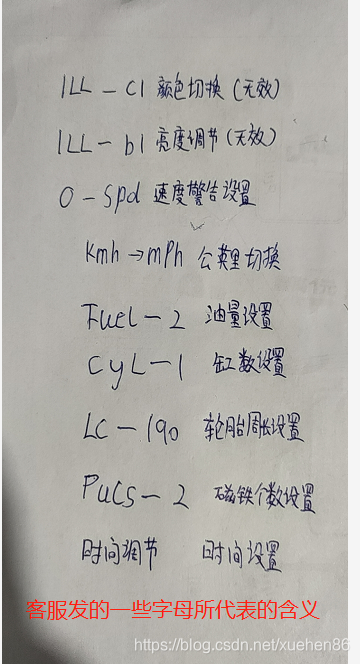 ILL-cl 颜色切换(无效)
ILL-bl 亮度调节(无效)
O-Spd 速度警告设置
Kmh→mPh 公英里切换
Fuel-2 油量设置
CyL-1 缸数设置
LC-190 轮胎周长设置
PUCS-2 磁铁个数设置
时间调节 时间设置
客服发的一些字母所代表的含义
https://blog.csdn.net/xuehen86